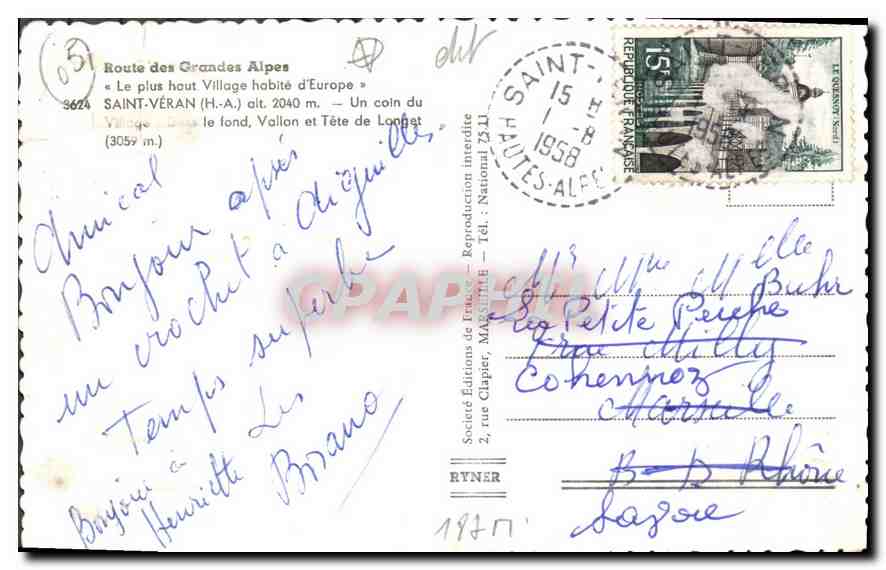 Route des Grandes Alpes
« Le plus haut Village habité d'Europe »
3624 SAINT-VÉRAN (H.-A.) alt. 2040 m. — Un coin du
Village - Dans le fond, Vallon et Tête de Longet
(3059 m.)
05
Amical
Bonjour après
un crochet à Aiguilles.
Temps superbe
Les
Bosano
Bonjour à
Henriette
Société Éditions de France - Reproduction interdite
2, rue Clapier, MARSEILLE — Tél. : National 75.11
RYNER
SAINT-
15 H
1 -8
1958
HAUTES-ALPES
15F
REPUBLIQUE FRANÇAISE
LE QUESNOY-Nord
CPAPHIL
Mr Mme Melle
Buhr
La Petite Perche
Milly
Cohennoz
Marseille
B D Rhône
Savoie
187M